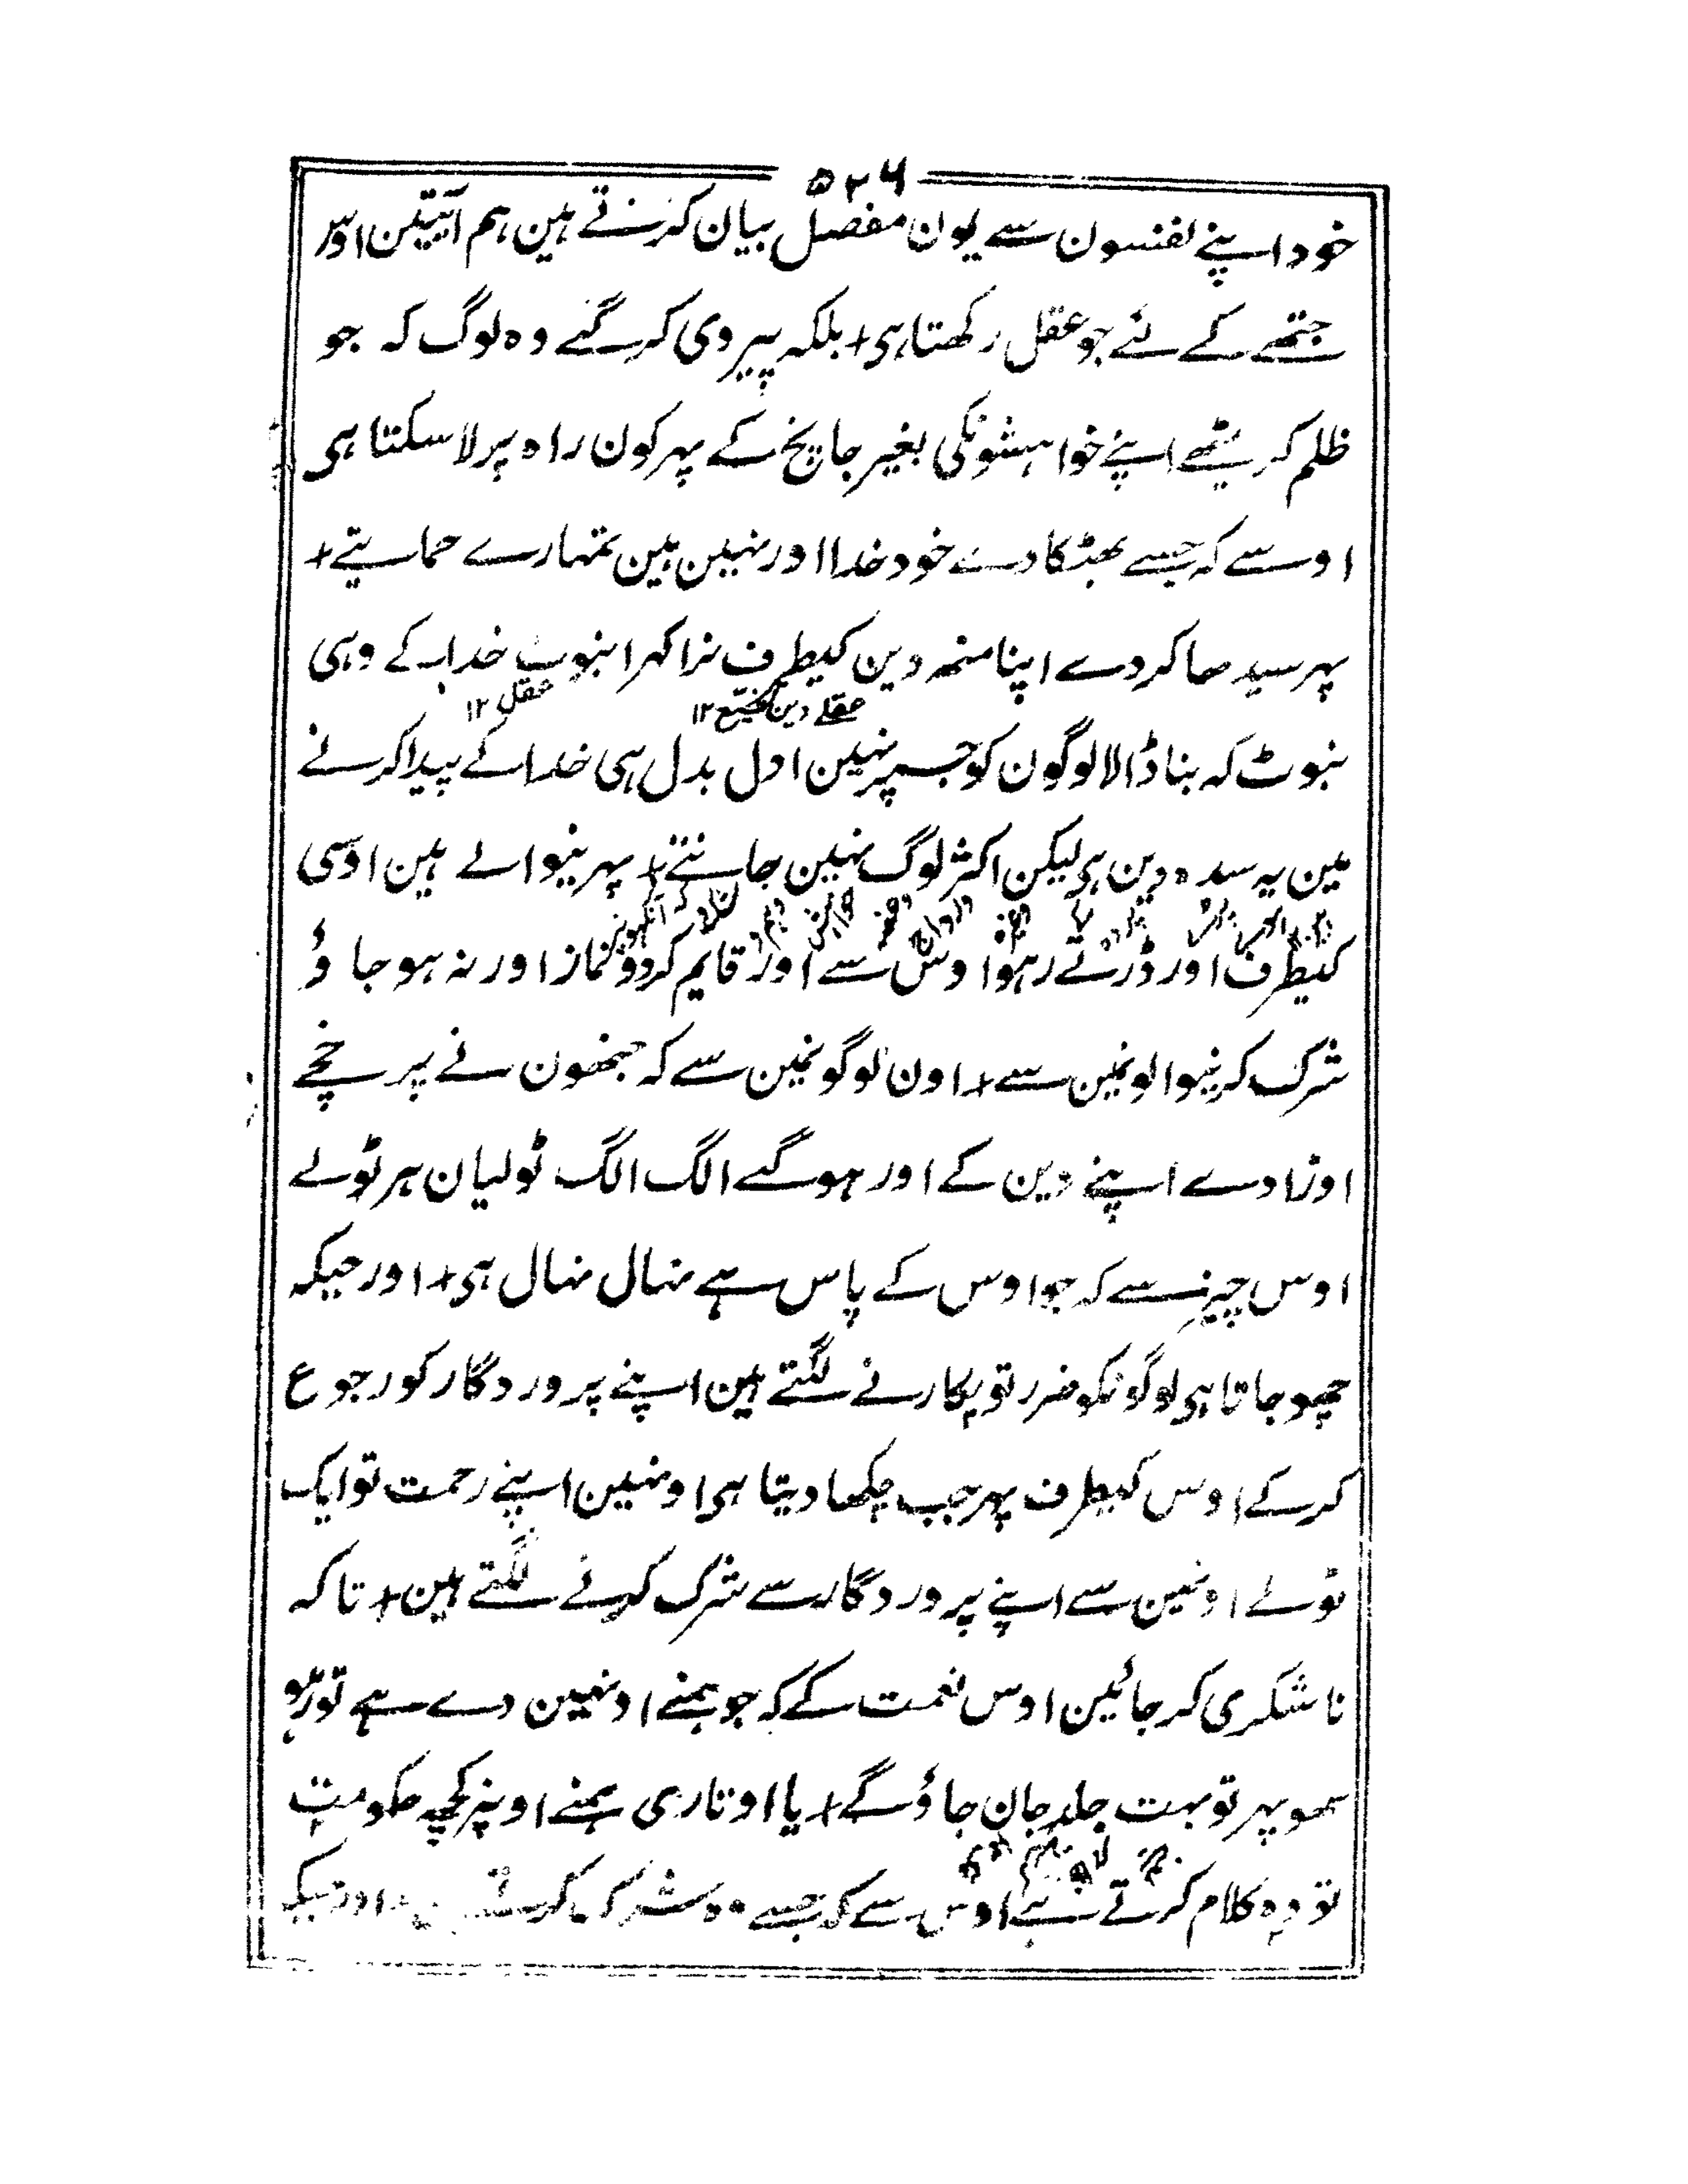 ۵۲۶
خود اپنے نفسون سے یون مفصل بیان کرتے ہین ہم آیتین اوس
جتھے کے لئے جو عقل رکھتا ہی + بلکہ پیروی کر گئے وہ لوگ کہ جو
ظلم کر بیٹھے اپنے خواہشونکی بغیر جانچ کے پہر کون راہ پر لا سکتا ہی
اوسے کہ جسے بھٹکا دے خود خدا اور نہین ہین تمہارے حمایتے +
پہر سیدھا کر دے اپنا منھ دین کیطرف نرا کہرا بنوٹ خدا کے وہی
عقلے دین ۱۲ عقل ۱۲
بنوٹ کہ بنا ڈالا لوگون کو جسپر نہین ادل بدل ہی خدا کے پیدا کرنے
مین یہ سدہ دین ہی لیکن اکثر لوگ نہین جانتے + پہرنیوالے ہین اوسی
کیطرف اور ڈرتے رہو اوس سے اور قایم کردو نماز اور نہ ہو جاؤ
شرک کرنیوالونمین سے + اون لوگونمین سے کہ جنھون نے پرخچے
اوڑا دے اپنے دین کے اور ہو گئے الگ الگ ٹولیان ہر ٹولے
اوس چیز سے کہ جو اوس کے پاس ہے نہال نہال ہی + اور جبکہ
چھو جاتا ہی لوگونکو ضرر تو پکارنے لگتے ہین اپنے پروردگار کو رجوع
کر کے اوس کیطرف پہر جب چکھا دیتا ہی اونہین اپنے رحمت تو ایک
ٹولے اونمین سے اپنے پروردگار سے شرک کرنے لگتے ہین + تا کہ
ناشکری کر جائین اوس نعمت کے کہ جو ہمنے اونہین دے ہے تو رہو
سہو پہر تو بہت جلد جان جاؤگے + یا اوتاری ہمنے اونپر کچھ حکومت
تو وہ کلام کرتے ہے اوس سے کہ جسے وہ شرک کرتے اور جبکہ